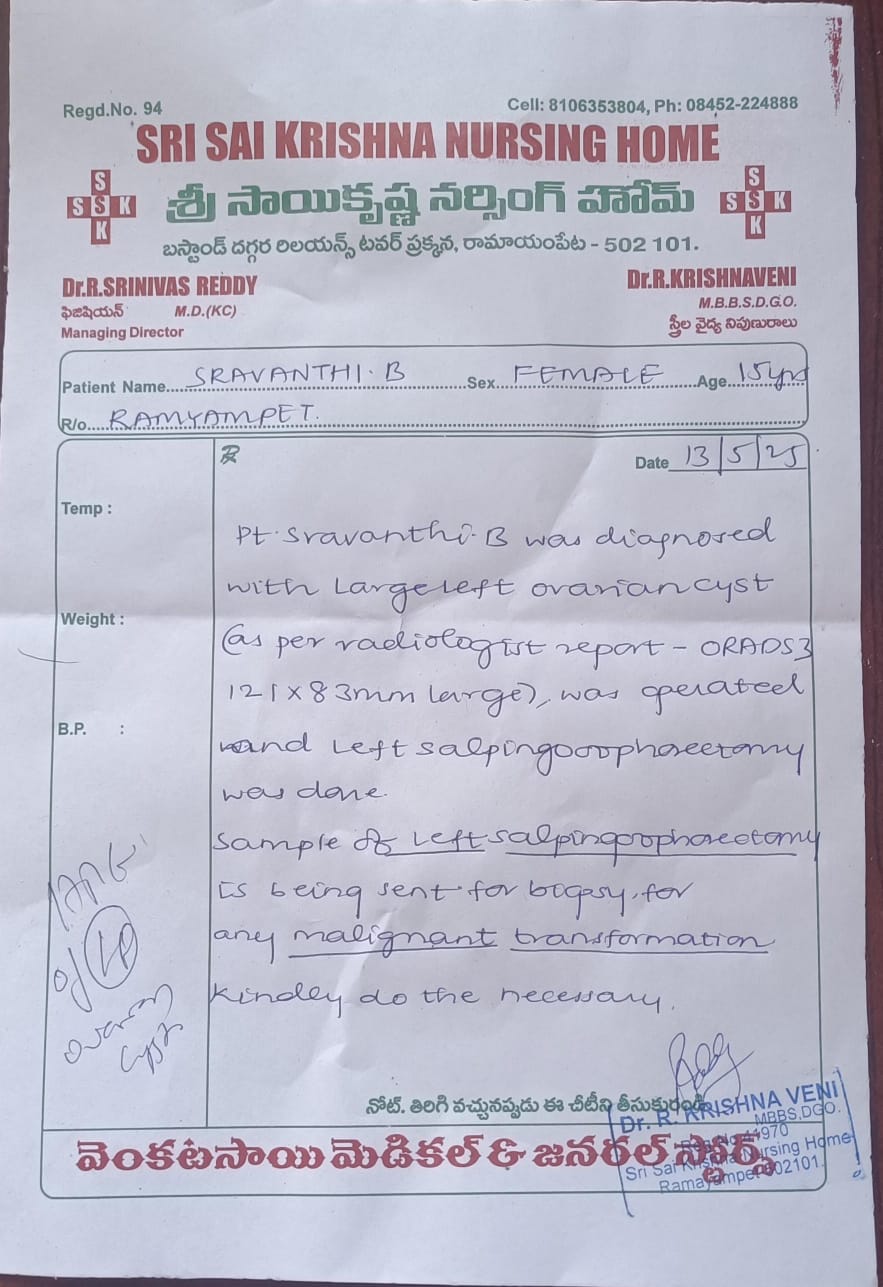 Regd.No. 94
Cell: 8106353804, Ph: 08452-224888
SRI SAI KRISHNA NURSING HOME
S
S S K
K
శ్రీ సాయికృష్ణ నర్సింగ్ హోమ్
S
S S K
K
బస్టాండ్ దగ్గర రిలయన్స్ టవర్ ప్రక్కన, రామాయంపేట - 502 101.
Dr.R.SRINIVAS REDDY
ఫిజిషియన్ M.D.(KC)
Managing Director
Dr.R.KRISHNAVENI
M.B.B.S.D.G.O.
స్త్రీల వైద్య నిపుణురాలు
Patient Name....SRAVANTHI. B....Sex...FEMALE....Age...15yrs
R/o....RAMYAMPET.
Rx
Date 13/5/25
Temp :
Weight :
B.P. :
Pt. Sravanthi. B was diagnosed
with Large left ovarian cyst
(as per radiologist report - ORADS3
121 x 83mm large), was operated
and left salpingooophoreectomy
was done.
Sample of left salpingoophorectomy
is being sent for biopsy, for
any malignant transformation
kindley do the necessary.
ovarian
cyst
నోట్. తిరిగి వచ్చునప్పుడు ఈ చీటీని తీసుకురండి
Dr. R. KRISHNA VENI
MBBS,DGO.
Sri Sai Krishna Nursing Home
Ramayampet-502101.
వెంకటసాయి మెడికల్ & జనరల్ స్టోర్స్